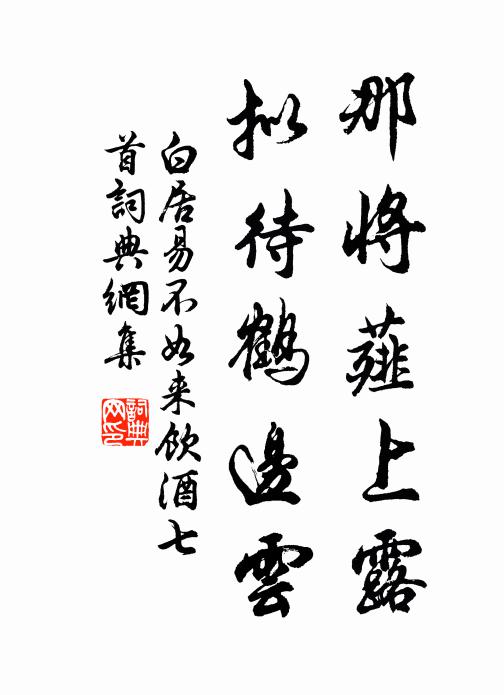 那將薤上露
拟待鶴邊雲
白居易不如来飲酒七
首詞典網集
詞典
网印